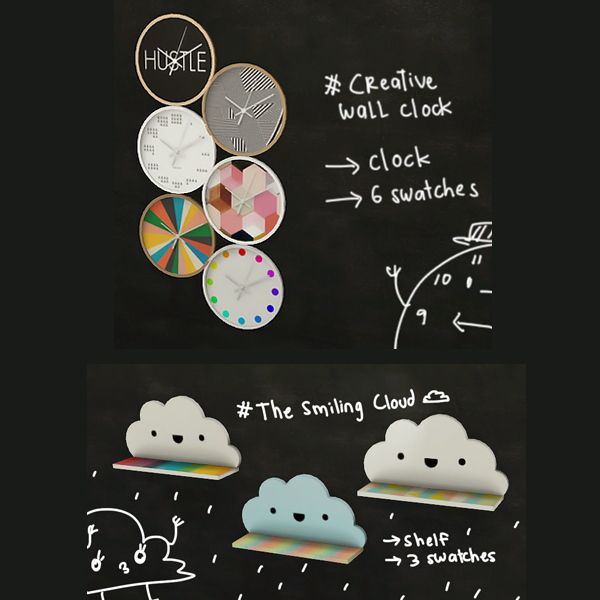 HUSTLE
# Creative
wall clock
→ clock
→ 6 swatches
11
10
9
# The Smiling Cloud
→ shelf
→ 3 swatches
3